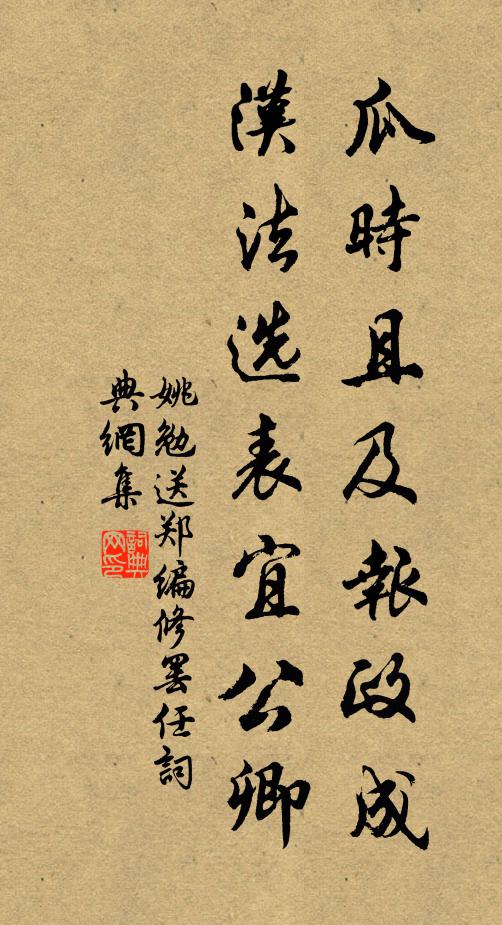 瓜時且及報政成
漢法选表宜公卿
姚勉送郑编修罢任詞
典網集
詞典网印